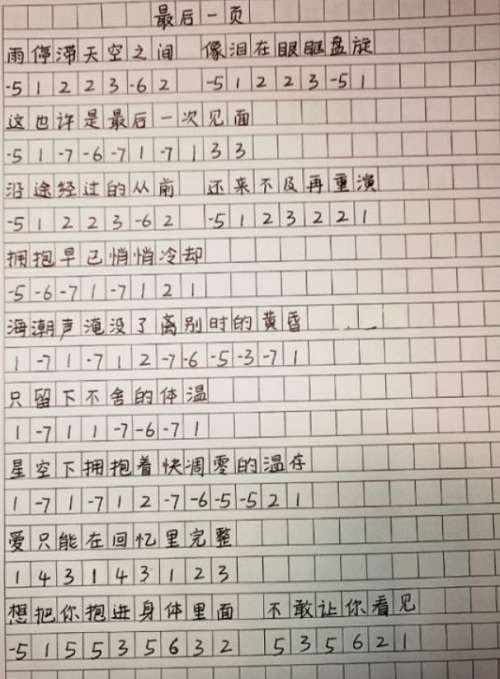 最后一页
雨停滞天空之间 像泪在眼眶盘旋
-5 1 2 2 3 -6 2 -5 1 2 2 3 -5 1
这也许是最后一次见面
-5 1 -7 -6 -7 1 -7 1 3 3
沿途经过的从前 还来不及再重演
-5 1 2 2 3 -6 2 -5 1 2 3 2 2 1
拥抱早已悄悄冷却
-5 -6 -7 1 -7 1 2 1
海潮声淹没了离别时的黄昏
1 -7 1 -7 1 2 -7 -6 -5 -3 -7 1
只留下不舍的体温
1 -7 1 1 -7 -6 -7 1
星空下拥抱着快凋零的温存
1 -7 1 -7 1 2 -7 -6 -5 -5 2 1
爱只能在回忆里完整
1 4 3 1 4 3 1 2 3
想把你抱进身体里面 不敢让你看见
-5 1 5 5 3 5 6 3 2 5 3 5 6 2 1